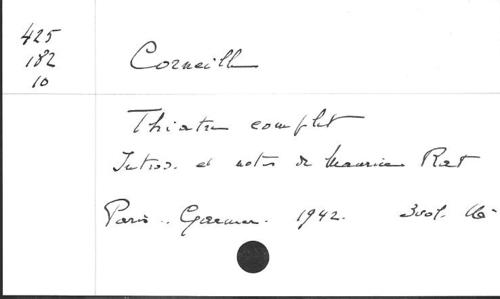 425
182
10
Corneille
Théatre complet
Introd. et notes de Maurice Rat
Paris. Garnier. 1942. 3 vol.